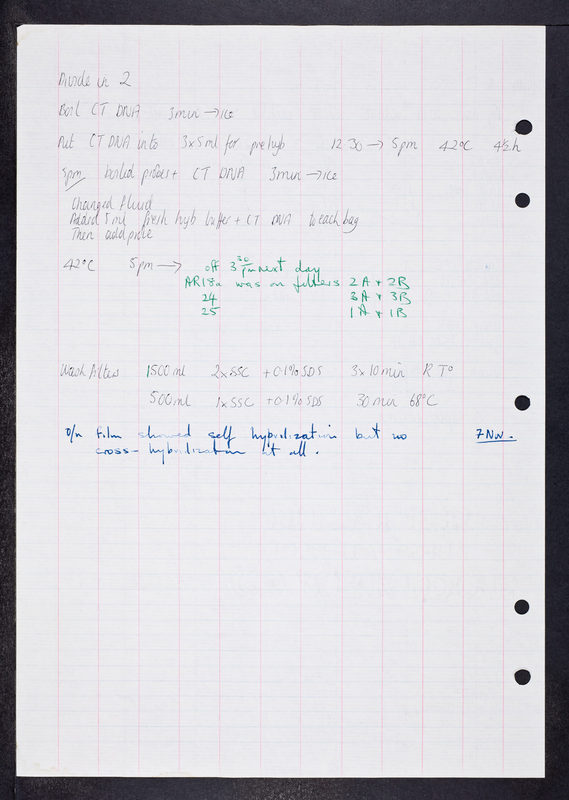 Divide in 2
Boil CT DNA 3min → ice
Put CT DNA into 3x5ml for prehyb 12.30 → 5pm 42°C 4½h
5pm boiled probes + CT DNA 3min → ice
Changed fluid
Added 5ml fresh hyb buffer + CT DNA to each bag
Then add probe
42°C 5pm → off 3³⁰ pm next day
AR18a was on filters 2A + 2B
24 3A + 3B
25 1A + 1B
Wash filters 1500ml 2xSSC + 0.1% SDS 3x10min RT°
500ml 1xSSC + 0.1% SDS 30min 68°C
o/n film showed self hybridization but no 7 Nov.
cross-hybridization at all.